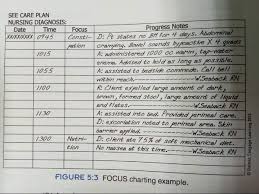 SEE CARE PLAN
NURSING DIAGNOSIS:
Date Time Focus Progress Notes
XXXXXXXX 0945 Consti- D: Pt states no BM for 4 days. Abdominal
pation cramping. Bowel sounds hypoactive X 4 quads
1015 A: administered 1000 cc warm, tap-water
enema. Advised to hold as long as possible.
1055 A: assisted to bedside commode. Call bell
within reach. W. Seaback RN
1100 R: Client expelled large amount of dark,
brown, formed stool, large amount of liquid
and flatus. W. Seaback RN
1130 A: assisted into bed. Provided perineal care.
D: excoriation noted to perineal area. Skin
barrier applied. W. Seaback RN
1300 Nutri- D: client ate 75% of soft mechanical diet.
tion No nausea at this time. W. Seaback RN
FIGURE 5:3 FOCUS charting example.